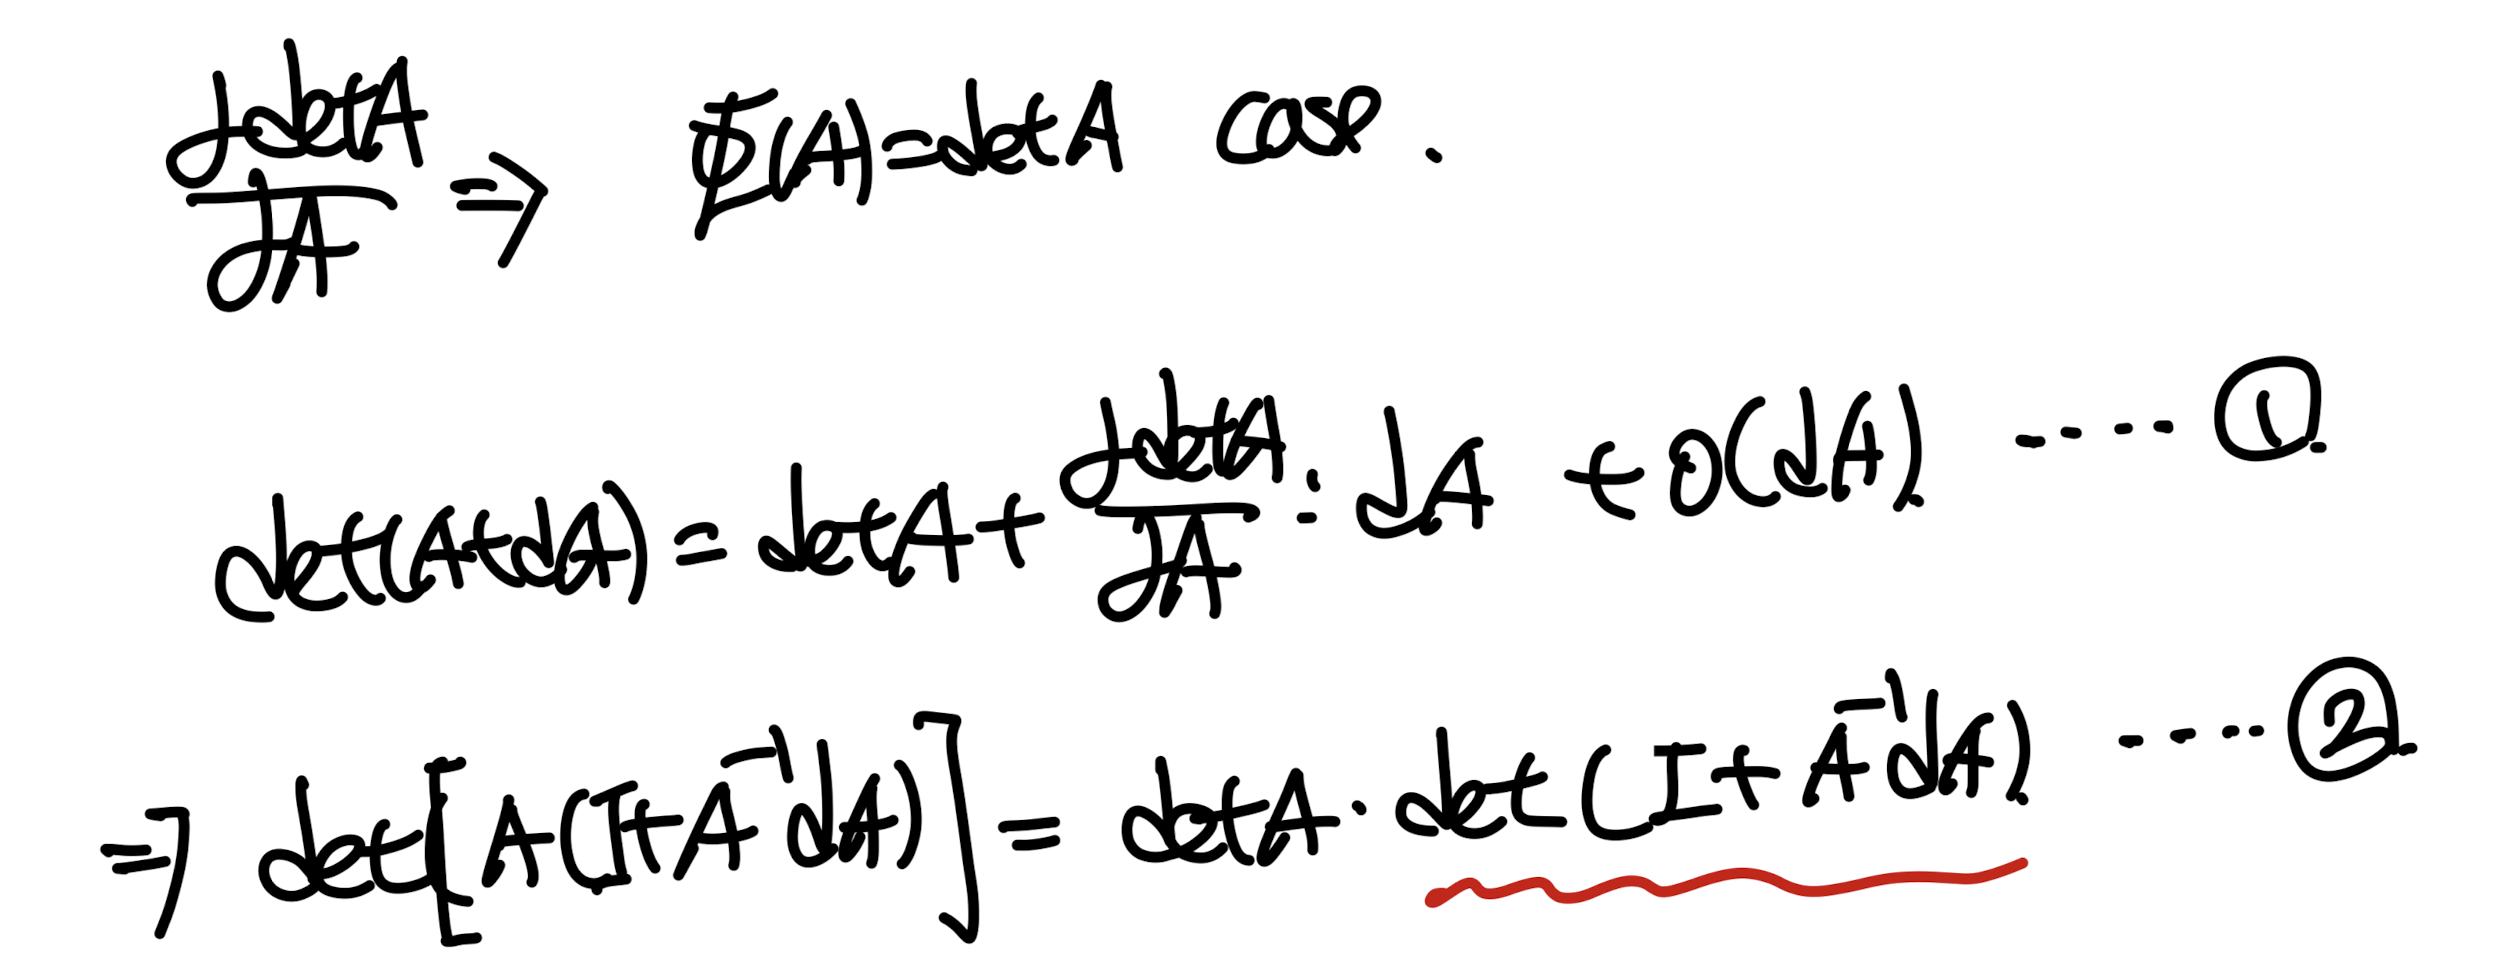 ∂detA/∂A ⇒ Φ(A)=detA case .
det(A+dA) = detA + ∂detA/∂A : dA + o(dA) ---- ①.
⇒ det[A(I+A⁻¹dA)] = detA · det(I+A⁻¹dA). ---- ②.